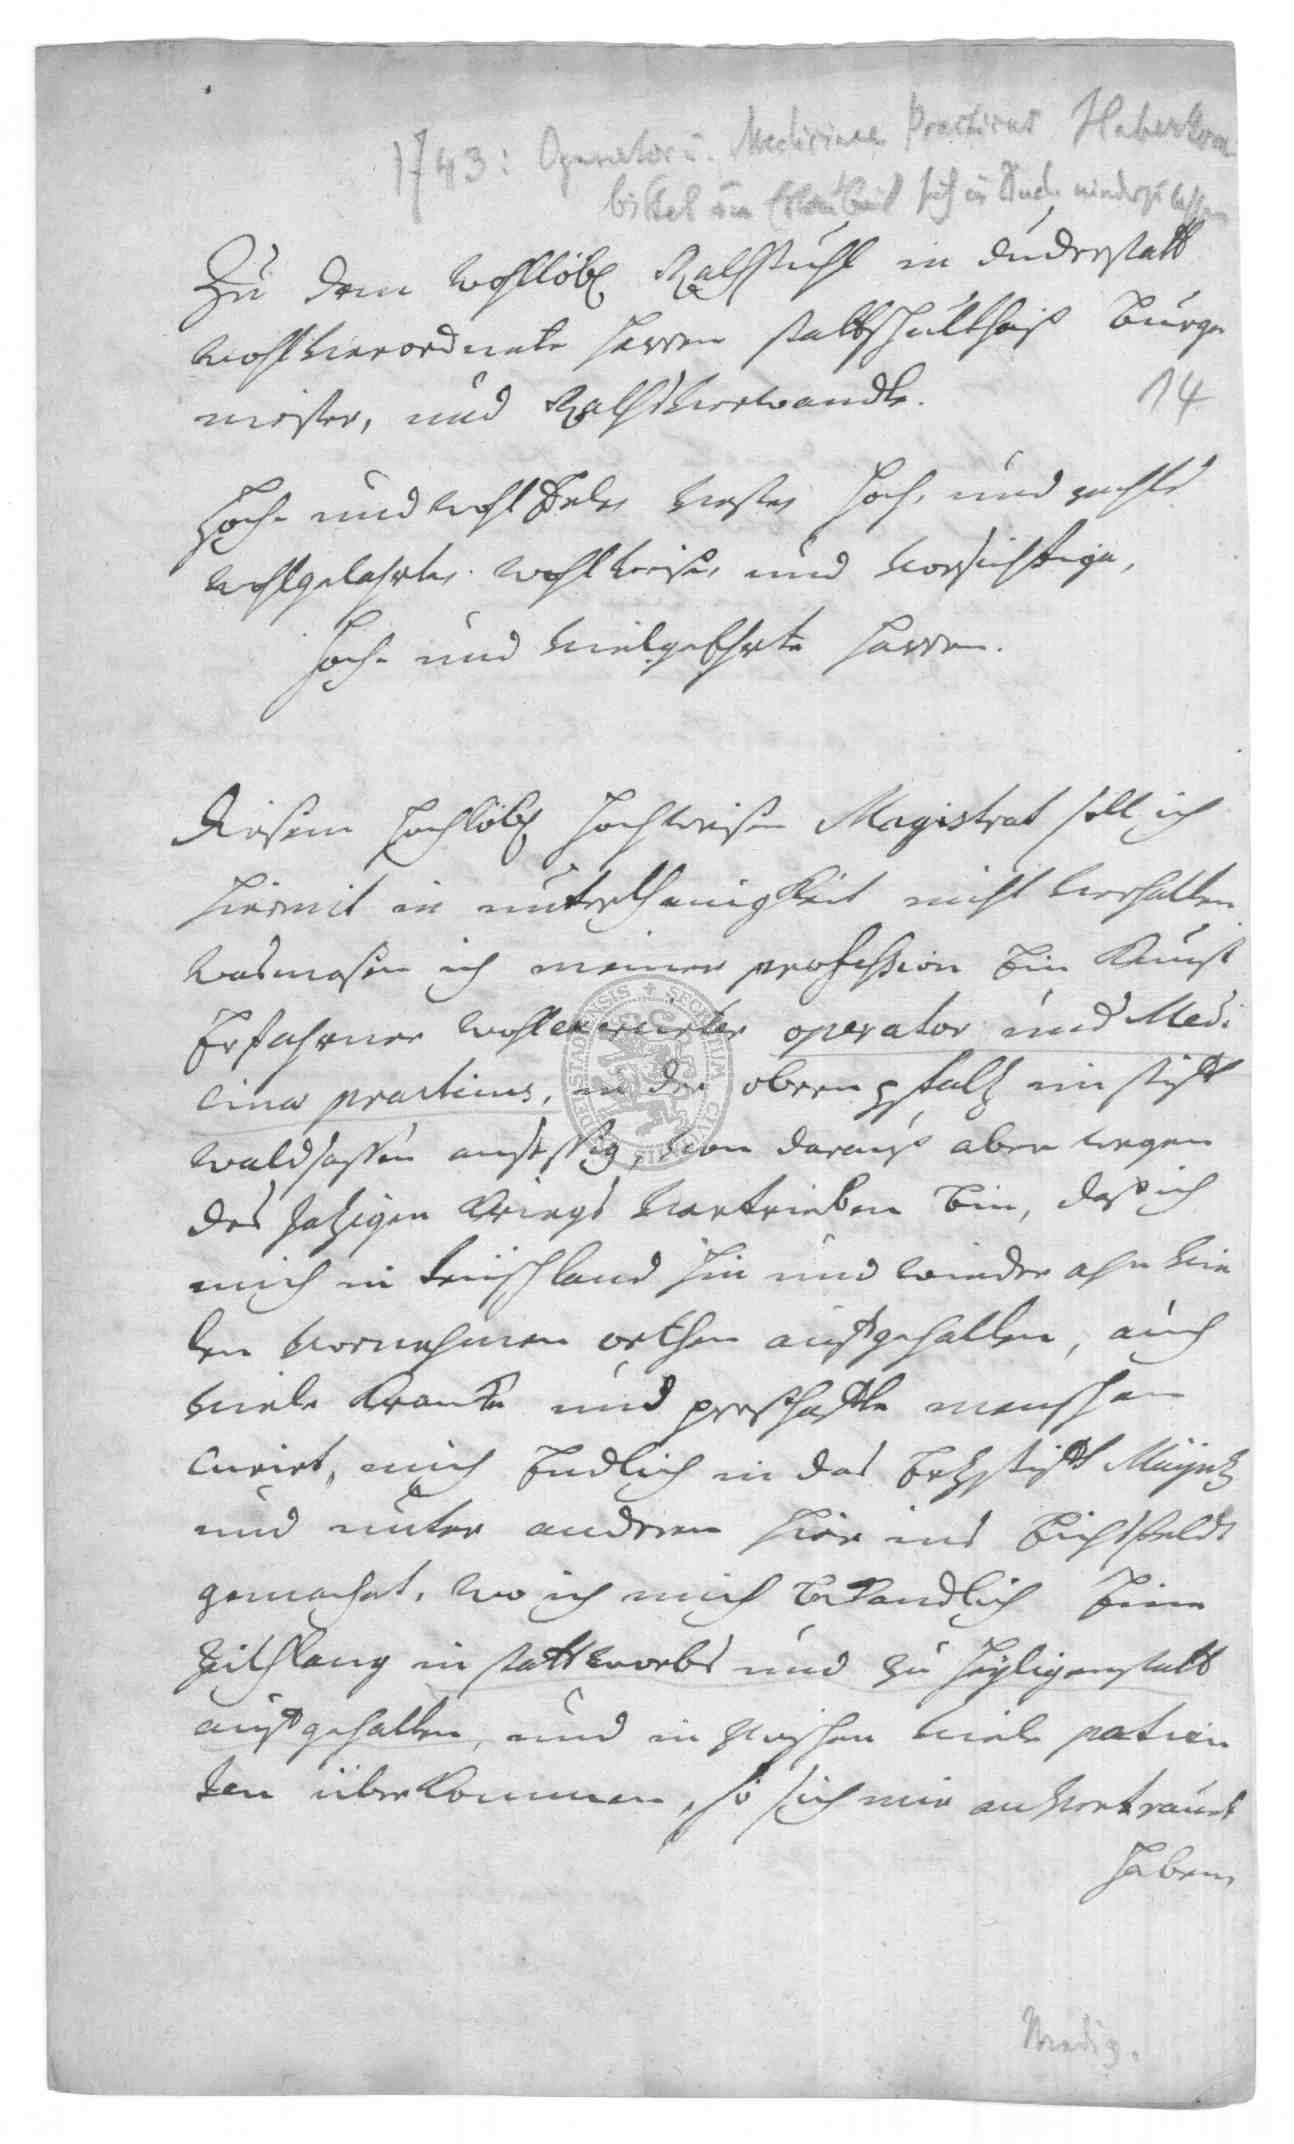 1743: Operator u. Medicinae Practicus Haberkorn
bittet um Erlaubnis sich in Dud. niederzulassen
Zu dem wohllöbl Rathstuhl in duderstatt
wohlverordnete Herren stattschultheiß Bürge
meister, und Rathsverwandte.
14
Hoch- und wohl Edele Veste, Hoch, und rechts
wohlgelahrte, wohlweise, und vorsichtige,
Hoch- und vielgeEhrte Herren.
diesem Hochlöbl Hochweisen Magistrat soll ich
hiermit in unterthanigkeit nicht verhalten
wasmasen ich meiner profession Ein Kunst
Erfahrner wohl operator und Medi
cinae practicus, in der obern pfaltz im stifft
waldsassen ansessig, von daraus aber wegen
des jetzigen Kriegs vertrieben bin, daß ich
mich in teutschland hin und wieder ahn vie
len vornehmen orthen auffgehalten, auch
viele Krancke und presthaffte menschen
curirt, mich Endlich in das Ertzstifft Mayntz
und unter anderen hier ins Eichsfeldt
gemachet, wo ich mich Eine
Zeithlang in stattworbs und zu Heyligenstatt
auffgehalten, und in zwischen viele patien
ten überkommen, so sich mir anvertraut
haben,